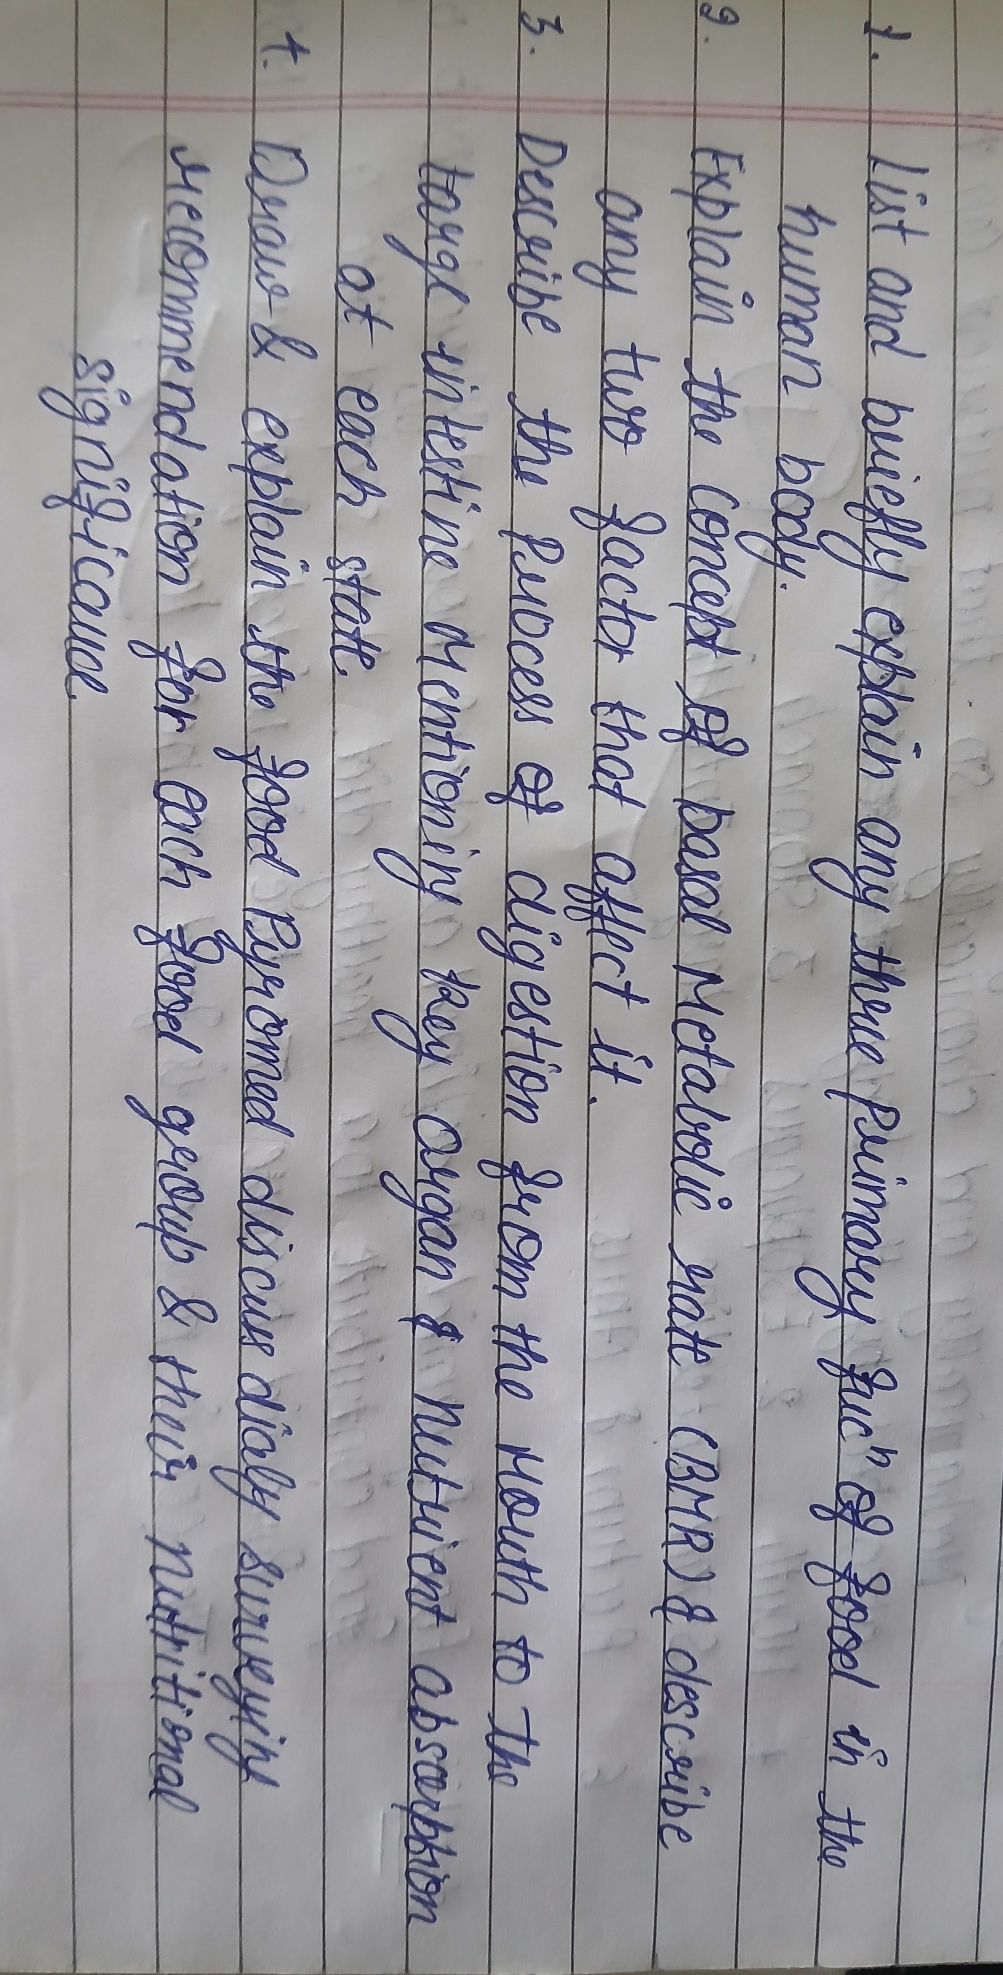 1. List and briefly explain any three primary funcⁿ of food in the
human body.
2. Explain the concept of basal Metabolic rate (BMR) & describe
any two factor that affect it.
3. Describe the Process of digestion from the Mouth to the
large intestine Mentioning key organ & nutrient absorption
at each state.
4. Draw & explain the food Pyramed discuss dialy surveying
recommendation for each food group & their nutritional
significance.